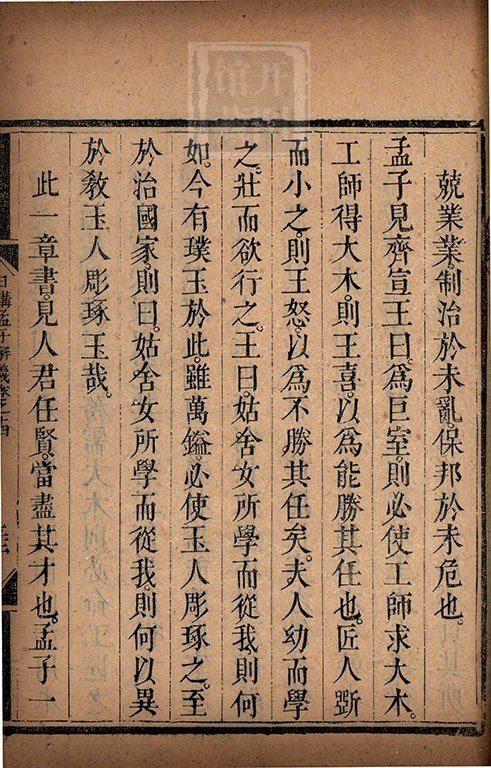 兢業業制治於未亂保邦於未危也
孟子見齊宣王曰爲巨室則必使工師求大木
工師得大木則王喜以爲能勝其任也匠人斲
而小之則王怒以爲不勝其任矣夫人幼而學
之壯而欲行之王曰姑舍女所學而從我則何
如今有璞玉於此雖萬鎰必使玉人彫琢之至
於治國家則曰姑舍女所學而從我則何以異
於教玉人彫琢玉哉
此一章書見人君任賢當盡其才也孟子一
日講孟子解義卷之十四